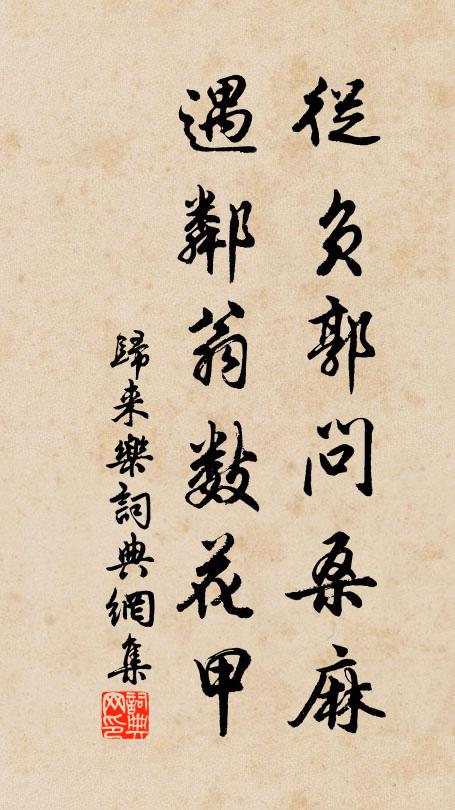 從負郭問桑麻
遇鄰翁數花甲
歸来樂詞典網集
詞典网印